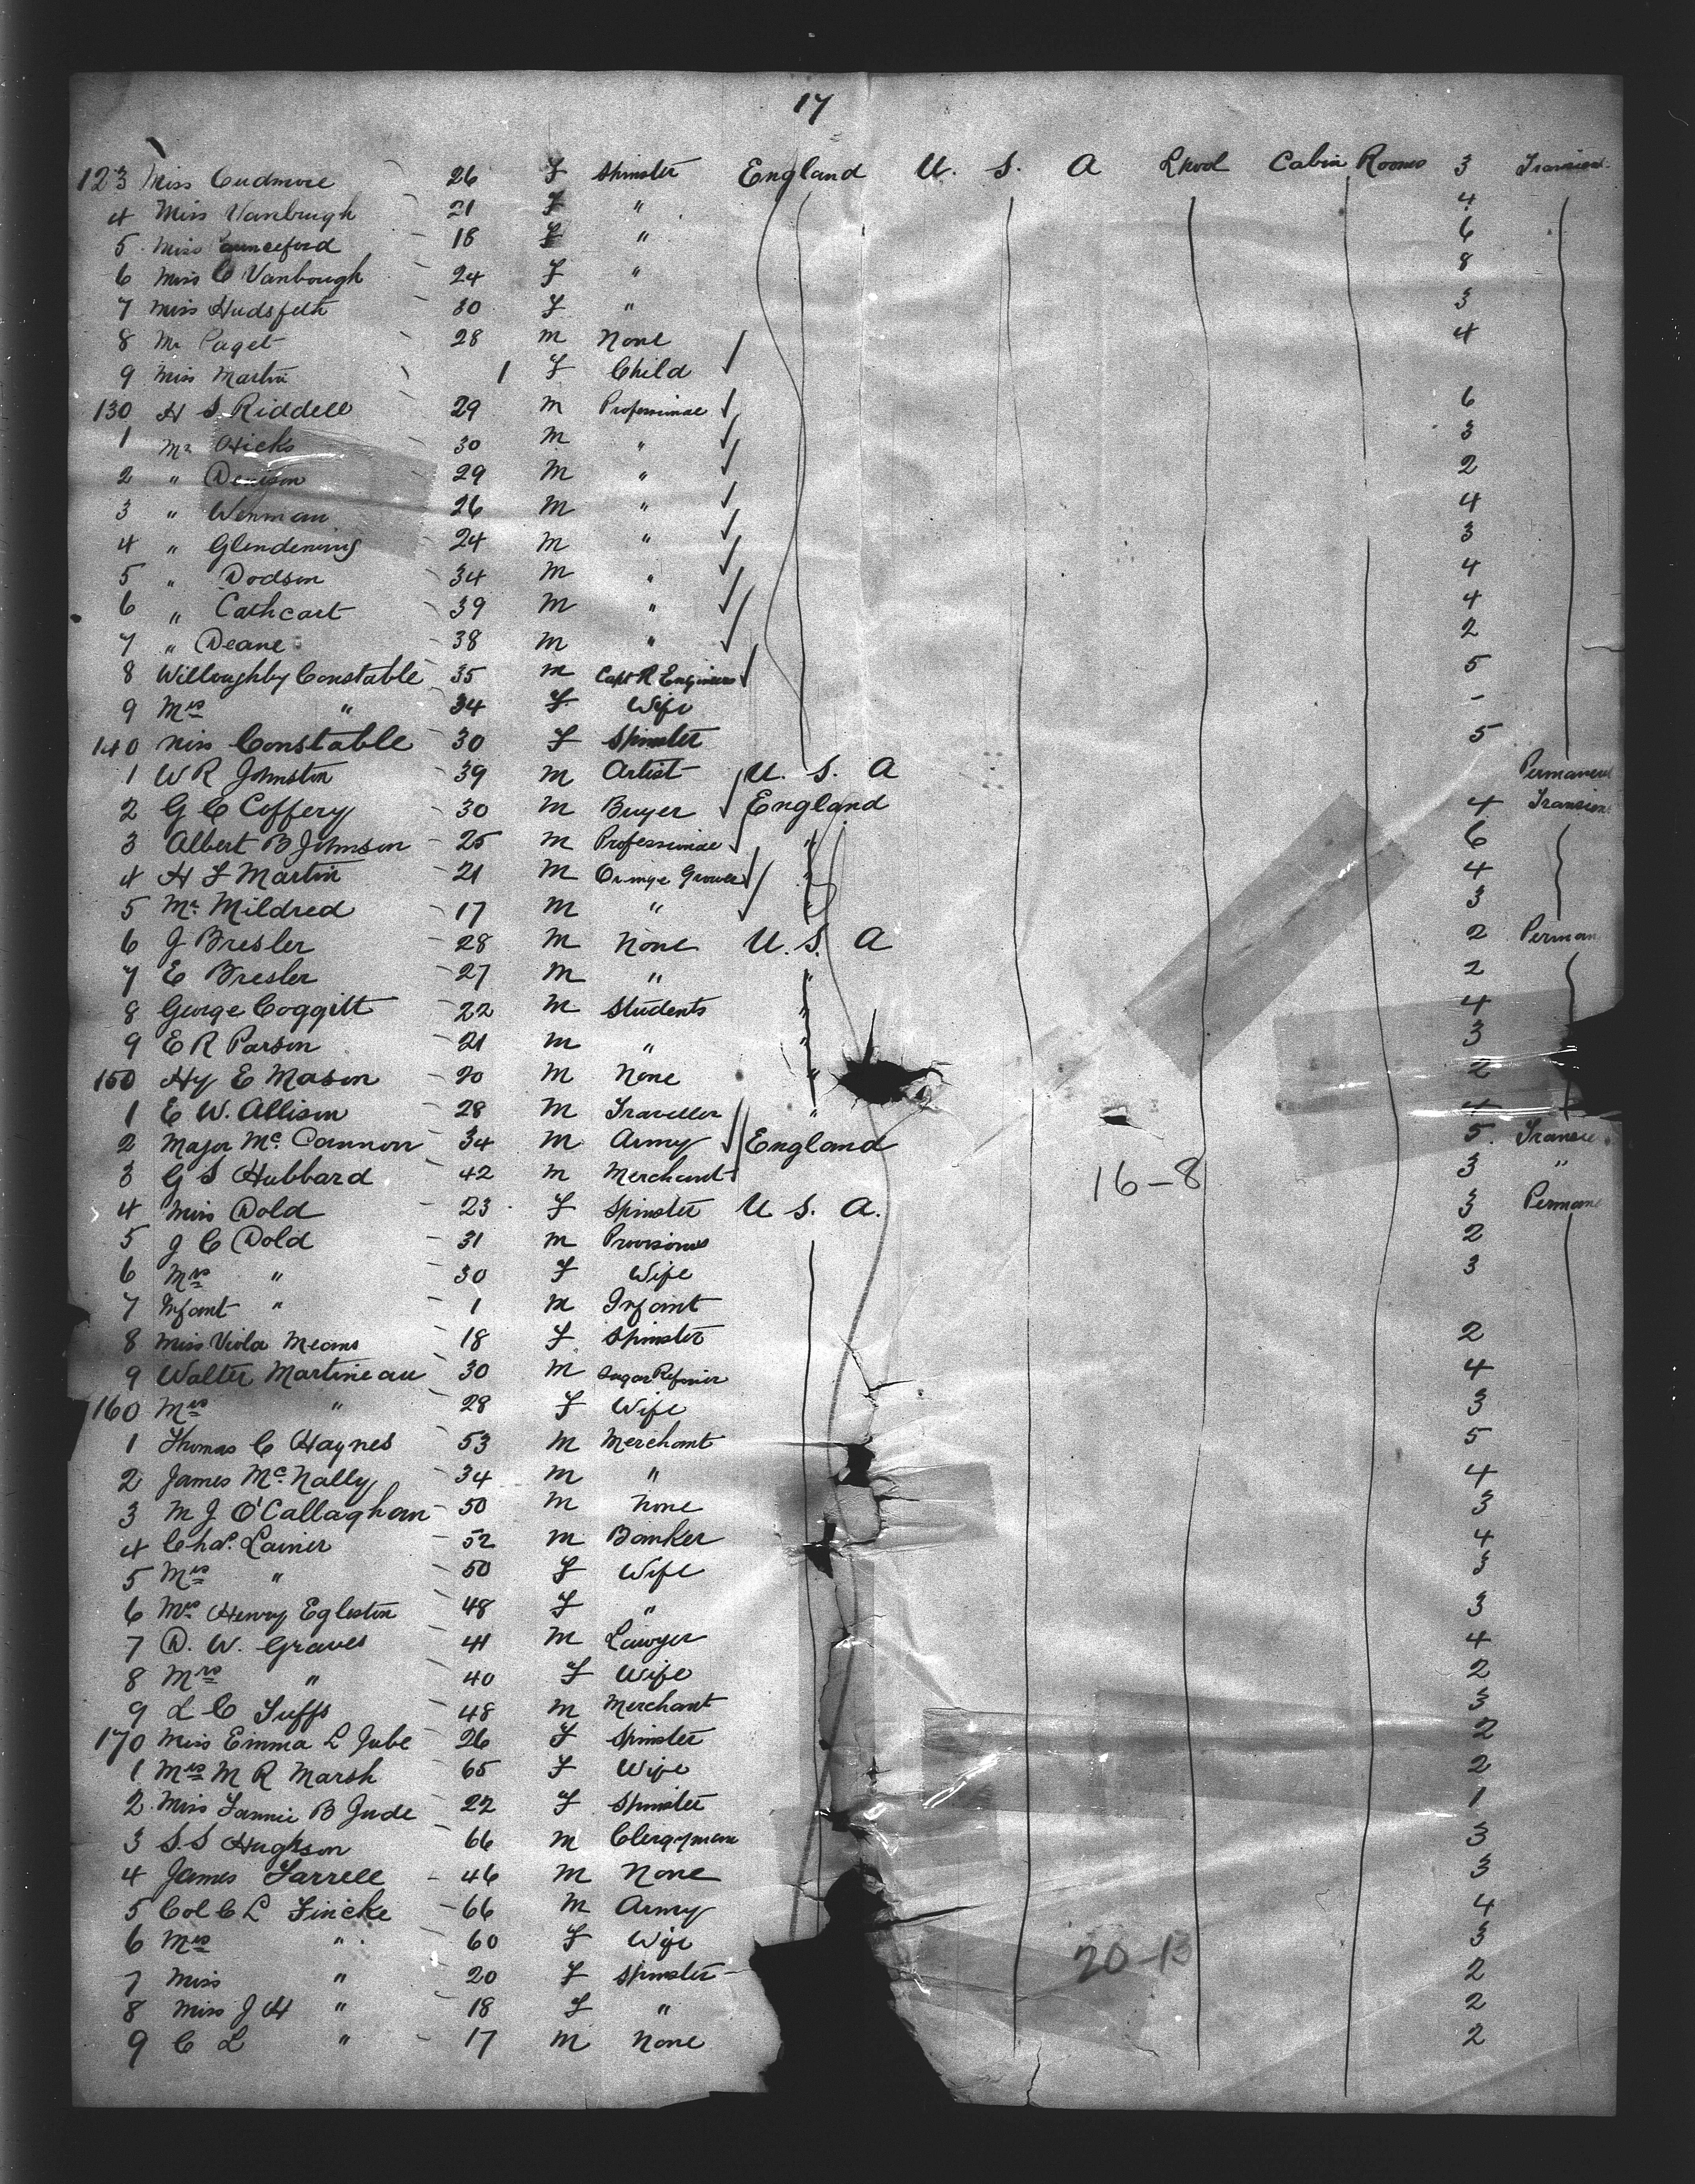 17
123 Miss Cudmore 26 F Spinster England U. S. A Lpool Cabin Rooms 3 Transient
4 Miss Vanbrugh 21 F " 4
5 Miss 18 F " 6
6 Miss C Vanbough 24 F " 8
7 Miss Hudspeth 30 F " 3
8 Mr Paget 28 M None 4
9 Miss Martin 1 F Child
130 H S Riddell 29 M Professional 6
1 Mr Hicks 30 M " 3
2 " Denison 29 M " 2
3 " Wenman 26 M " 4
4 " Glendening 24 M " 3
5 " Dodson 34 M " 4
6 " Cathcart 39 M " 4
7 " Deane 38 M " 2
8 Willoughby Constable 35 M Capt R Engineers 5
9 Mrs " 34 F Wife -
140 Miss Constable 30 F Spinster 5
1 W R Johnston 39 M Artist U. S. A Permanent
2 G C Coffery 30 M Buyer England 4 Transient
3 Albert B Johnson 25 M Professional " 6
4 H F Martin 21 M Orange Grower " 4
5 Mr Mildred 17 M " " 3
6 J Bresler 28 M None U. S. A 2 Perman
7 E Bresler 27 M " " 2
8 George Coggitt 22 M Students " 4
9 E R Parson 21 M " " 3
150 Hy E Mason 20 M None " 2
1 E W. Allison 28 M Traveller " 4
2 Major Mc Cannon 34 M Army England 5 Transie
3 G S Hubbard 42 M Merchant 16-8 3 "
4 Miss Dold 23 F Spinster U S. A. 3 Permane
5 J C Dold 31 M Provisions 2
6 Mrs " 30 F Wife 3
7 Infant " 1 M Infant
8 Miss Viola Means 18 F Spinster 2
9 Walter Martineau 30 M Sugar Refiner 4
160 Mrs " 28 F Wife 3
1 Thomas C Haynes 53 M Merchant 5
2 James Mc Nally 34 M " 4
3 M J O'Callaghan 50 M None 3
4 Chas. Lainer 52 M Banker 4
5 Mrs " 50 F Wife 3
6 Mrs Henry Egleston 48 F " 3
7 D. W. Graves 41 M Lawyer 4
8 Mrs " 40 F Wife 2
9 L C Tuffs 48 M Merchant 3
170 Miss Emma L Jube 26 F Spinster 2
1 Mrs M R Marsh 65 F Wife 2
2 Miss Fannie B Jude 22 F Spinster 1
3 S. S Hughson 66 M Clergyman 3
4 James Farrell 46 M None 3
5 Col C L Fincke 66 M Army 4
6 Mrs " 60 F Wife 20-13 3
7 Miss " 20 F Spinster 2
8 Miss J H " 18 F " 2
9 C L " 17 M None 2